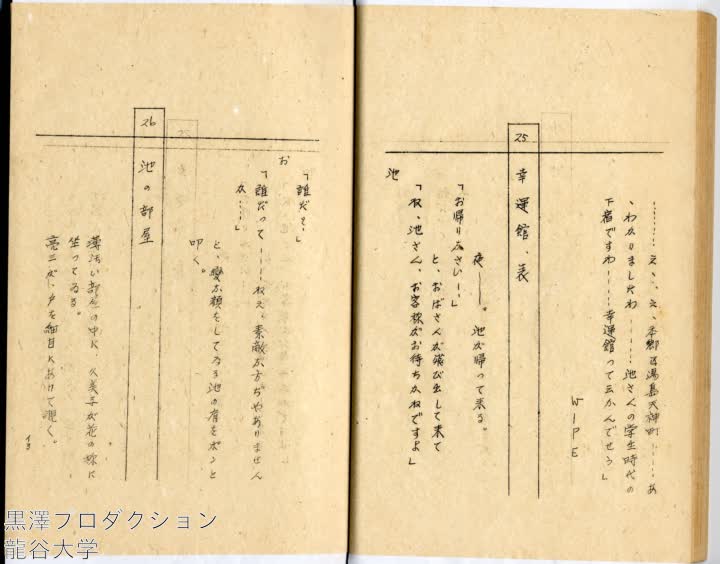 ………え、え、本郷区湯島天神町……あ
、わかりましたわ……池さんの学生時代の
下宿ですわ……幸運館って云うんでせう」
WIPE
25 幸運館、表
夜——。池が帰って来る。
「お帰りなさい……」
と、おばさんが飛び出して来て
「ね、池さん、お客様がお待ちかねですよ」
池
「誰だい」
お
「誰だって……ねえ、素敵な方ぢやありません
か……」
と、変な顔をしてゐる池の肩をポンと
叩く。
26 池の部屋
薄汚い部屋の中に、久美子が花の様に
坐ってゐる。
亮三が、戸を細目にあけて覗く。
13
黒澤プロダクション
龍谷大学